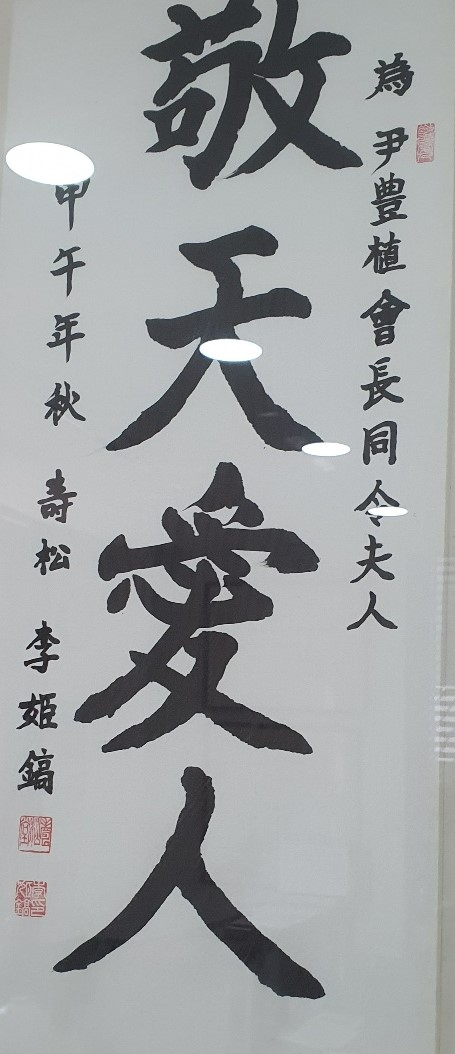 為 尹豊植會長同令夫人
敬天愛人
甲午年秋 壽松 李姫鎬